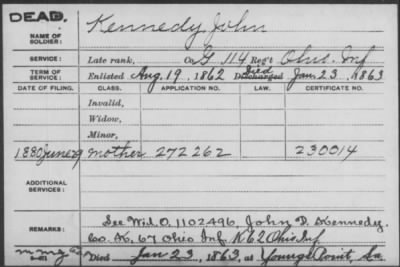 DEAD.
NAME OF SOLDIER: Kennedy, John
SERVICE: Late rank, Co. G, 114 Reg't Ohio Inf
TERM OF SERVICE: Enlisted Aug. 19, 1862 Died Discharged Jan. 23, 1863
DATE OF FILING. CLASS. APPLICATION NO. LAW. CERTIFICATE NO.
Invalid,
Widow,
Minor,
1880 June 29 Mother 272262 230014
ADDITIONAL SERVICES:
REMARKS: See Wid. O. 1102496, John D. Kennedy
Co. K, 67 Ohio Inf K 62 Ohio Inf
Died Jan 23, 1863, at Youngs Point, La